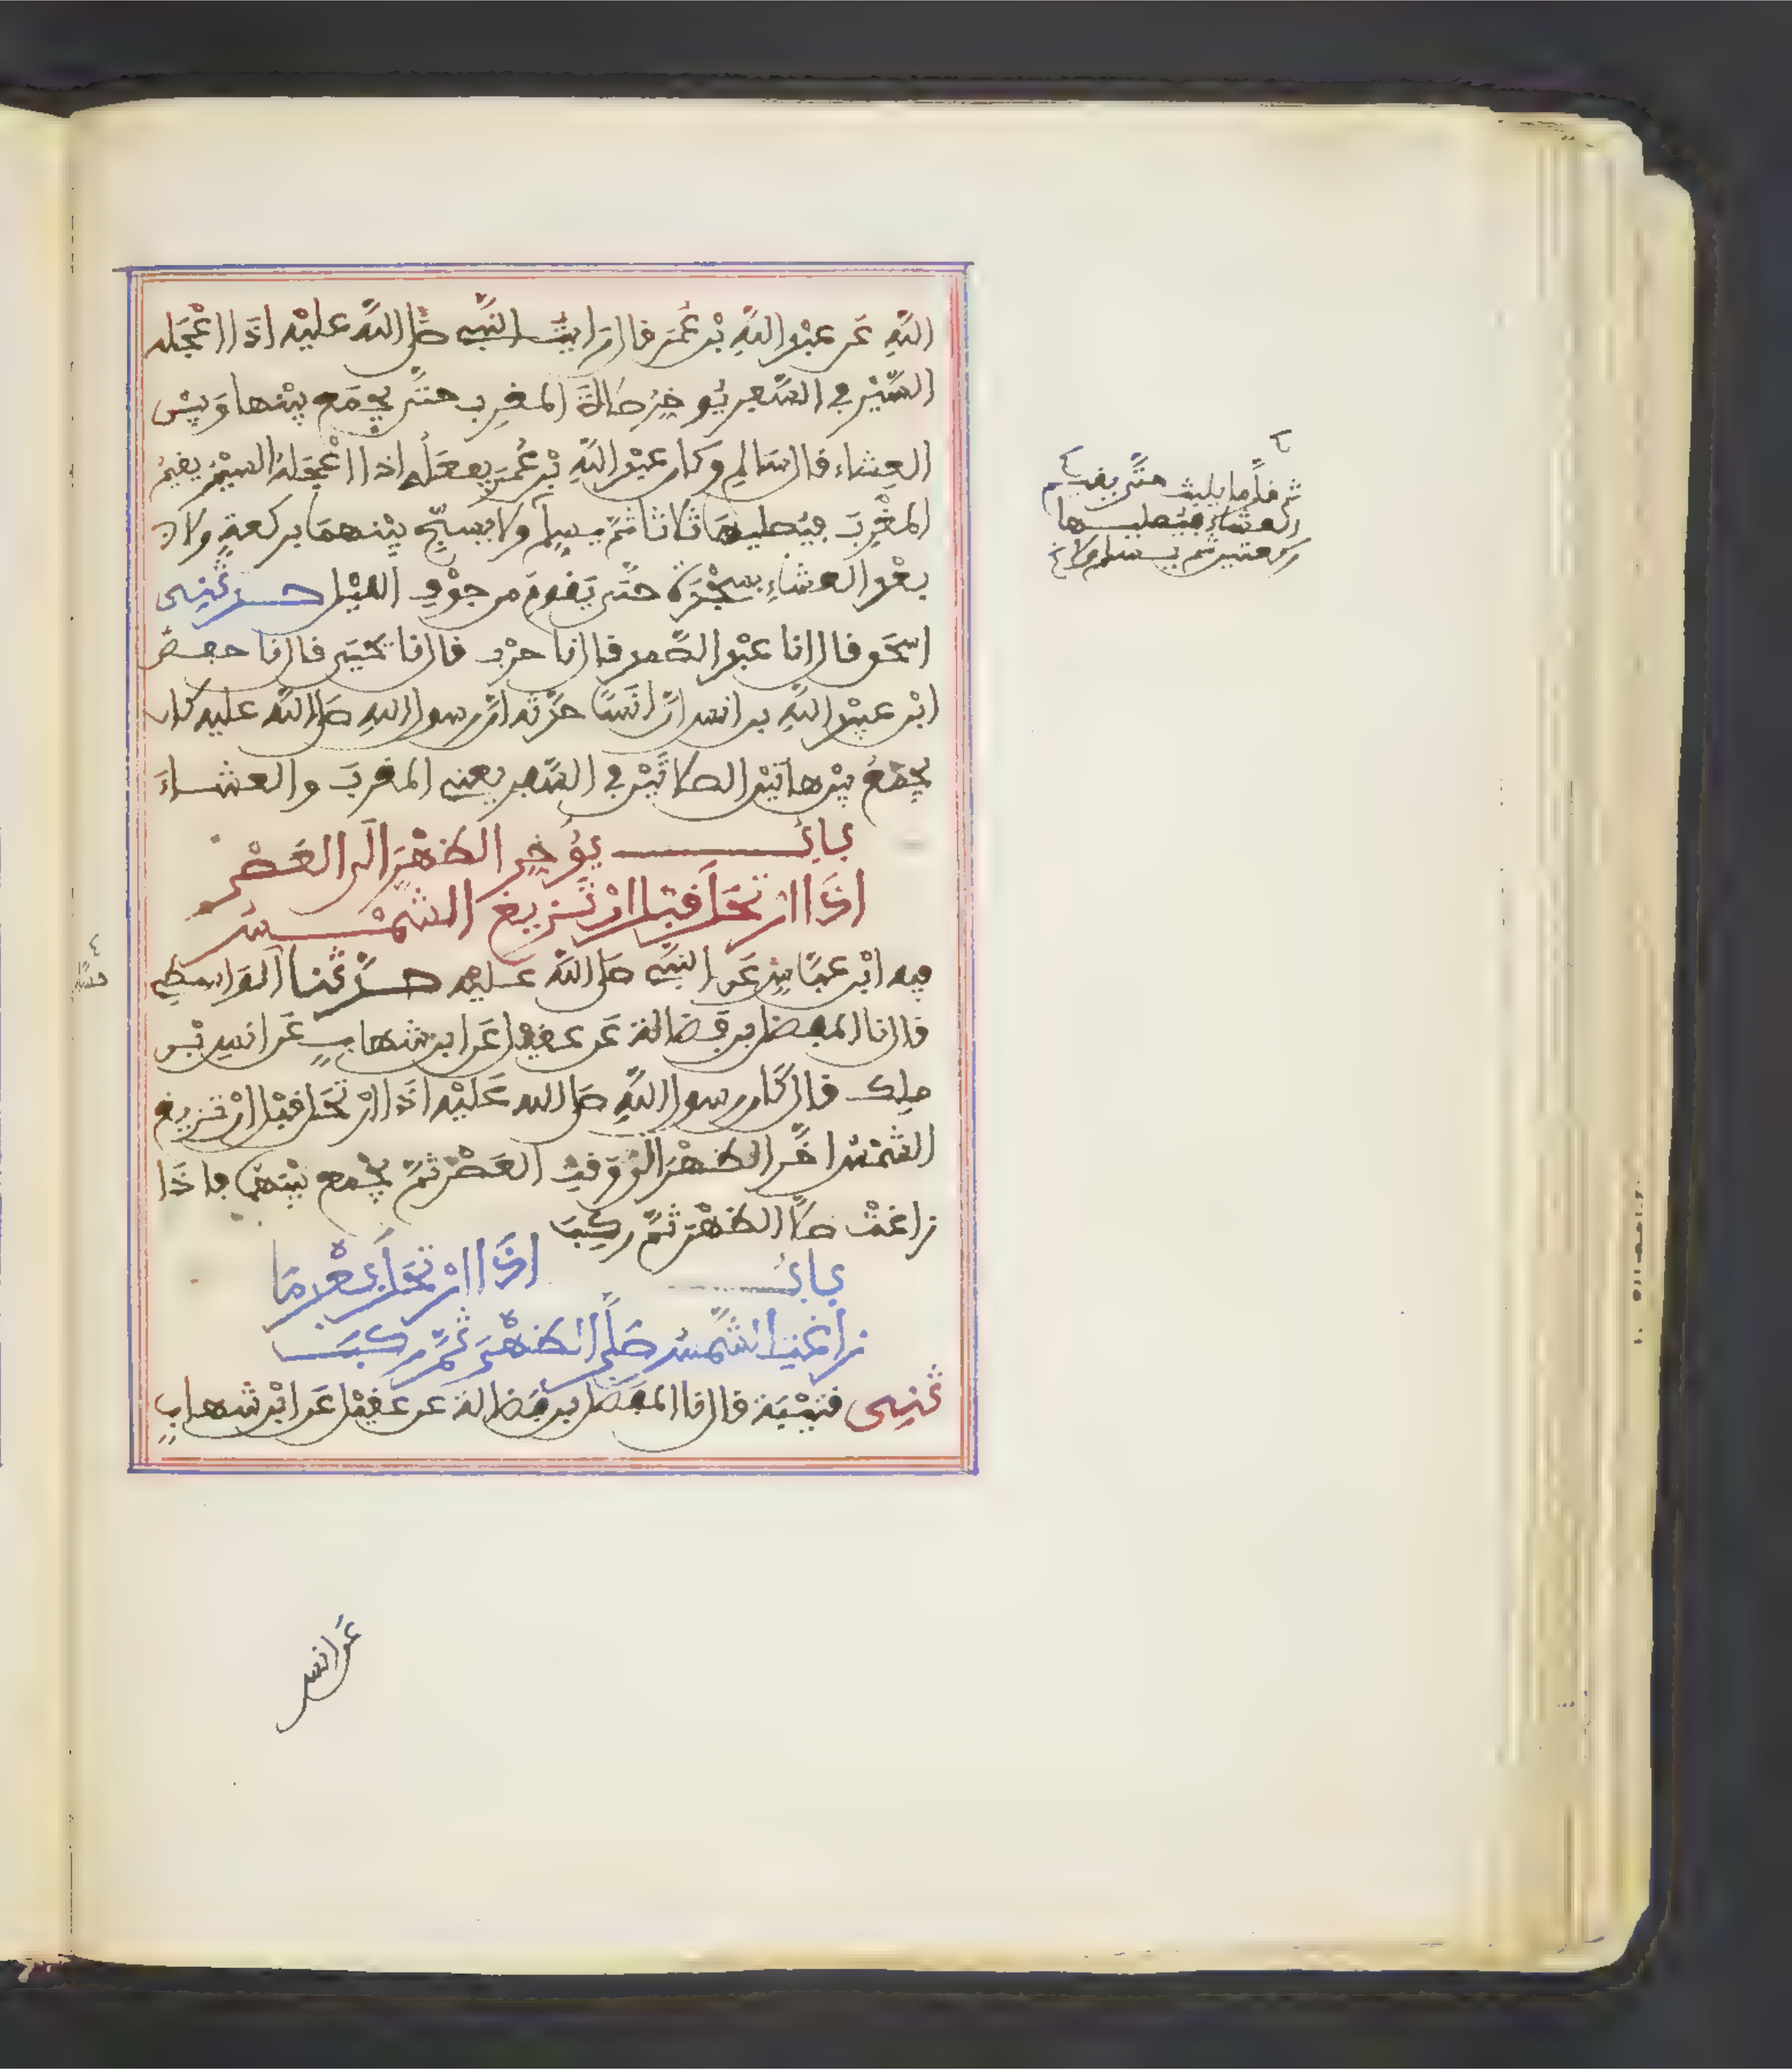 اللَّهِ عَن عبْدِ اللَّهِ بْن عُمَرَ قال رَايتُ النَّبِي صَلَّى اللَّه عليْه اذَا اعْجَله
السَّيْر في السَّفر يُوخِرُ صلاةَ المغرِب حتَّى يجْمَع بيْنها وَبيْن
العِشاء قال سَالم وكان عبْد اللَّهِ بْن عُمَرَ يفعَلُه اذا اعْجَلهُ السيْرُ يقيمُ
المغْرِبَ فيُصليهَا ثلاثا ثمَّ يسلّم ولا يسبّح بيْنهمَا بركعةٍ ولا
بعْد العشاءِ بسجْدَة حتَّى يَقومَ من جوْفِ الليْل حدثنِى
اسحَق قال انا عبْد الصَّمد قال نا حرْب قال نا يحْيَى قال نا حفصُ
ابْن عبيْد اللَّهِ بن انس انَّ انَسًا حدَّثه انَّ رسول الله صَلى اللَّه عليه كان
يجْمَعُ بيْن هاتيْن الصلاتَيْن في السَّفر يعني المغربَ والعشاءَ
بابُ يؤَخِر الظهْرَ الَى العَصْر
اذَا ارْتحَلَ قبْل انْ تَزيغَ الشمْسُ
فيه ابْن عبَّاسٍ عَن النبِي صَلى اللَّه عليه حدَّثنا الوَاسطي
قال نا المفضل بن فَضالة عَن عقيْل عَن ابن شهابٍ عَن انسِ بْن
مٰلك قال كَان رسول اللَّهِ صَلى الله عَليْه اذَا ارْتحَل قبْل انْ تزيغ
الشمْسُ اخَّر الظهْرَ الَى وَقتِ العَصْر ثمَّ يجْمع بيْنهمَا فاذَا
زاغتْ صَلَّى الظهْرَ ثمَّ ركِبَ
بابُ اذَا ارْتحَلَ بعْد مَا
زاغتِ الشَّمْسُ صَلَّى الظهْرَ ثمَّ ركبَ
ثنِى قتيْبَة قال نا المفضل بن فَضالة عن عقيْل عَن ابْن شهابٍ
قلَّما يلبث حتَّى يقيم
العشاء فيُصليها
ركعتين ثم يسلم ولا
عَن انس